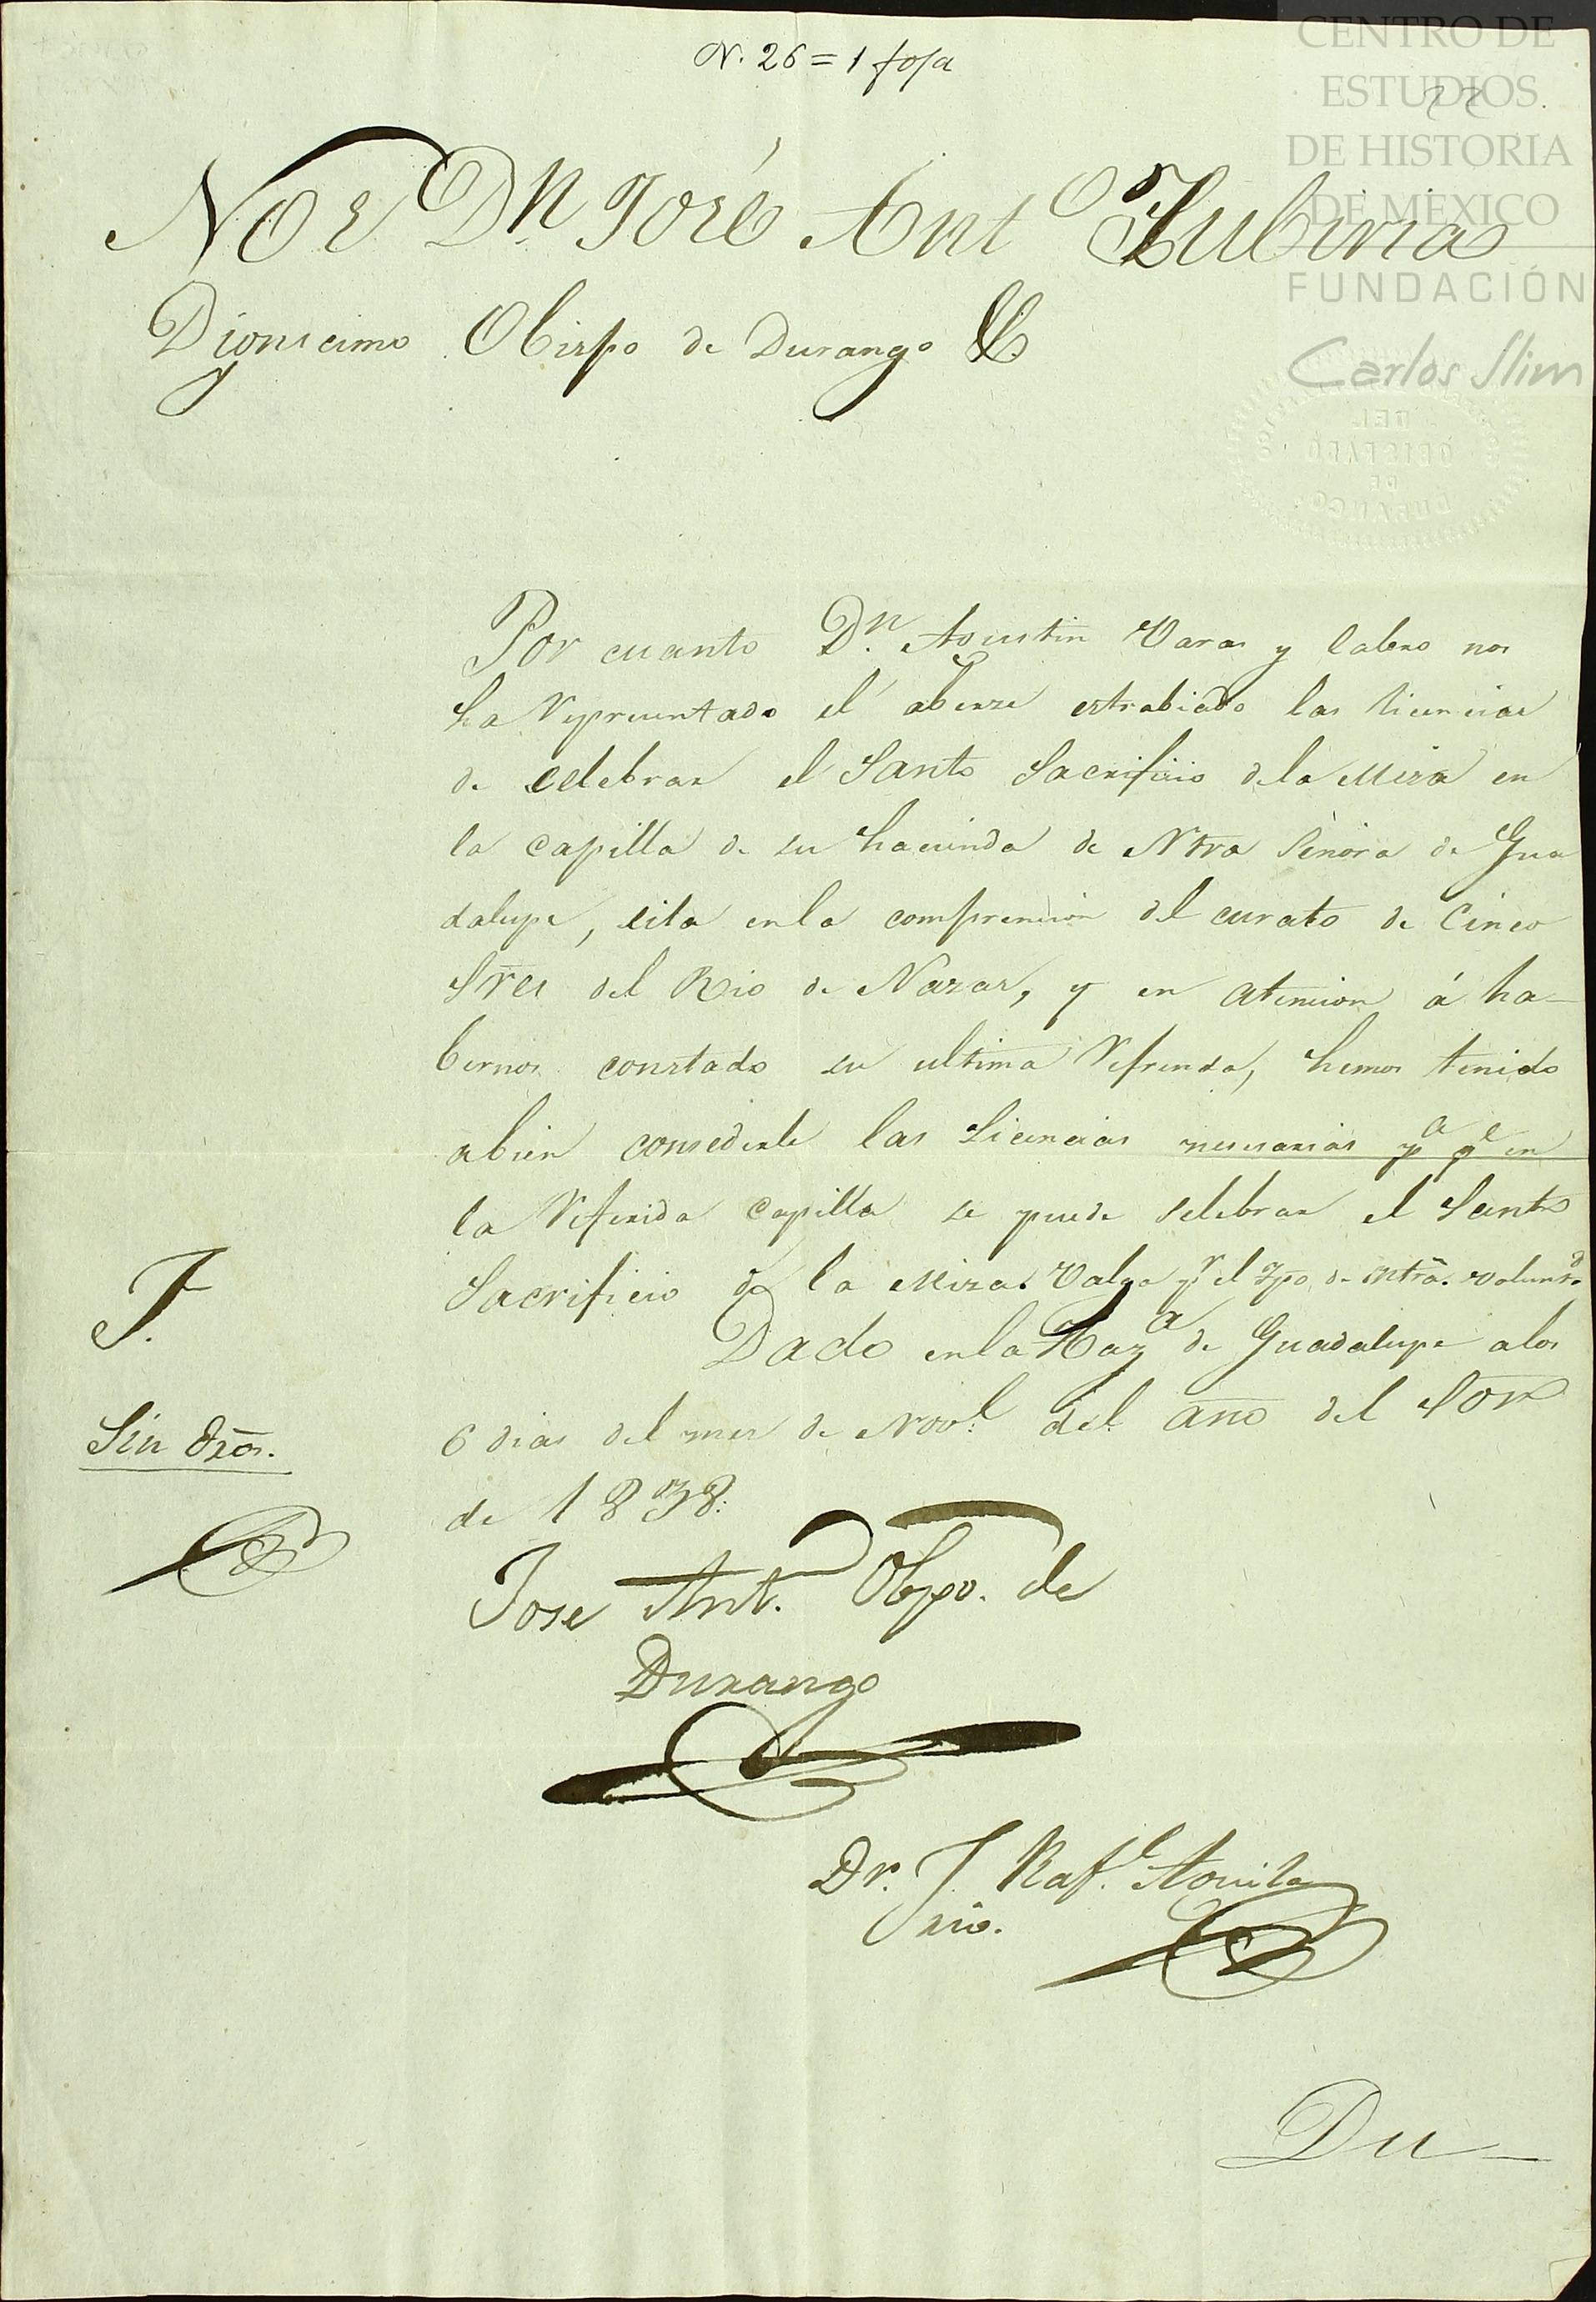 N. 26 = 1 foja
CENTRO DE
ESTUDIOS
DE HISTORIA
DE MÉXICO
FUNDACIÓN
Carlos Slim
22
Nos Dn José Anto Zubiria
Dignicimo Obispo de Durango &
DEL
OBISPADO
DE
DURANGO
Por cuanto Dn. Agustin Varas y Calero nos
ha representado el aberse estrabiado las licencias
de celebrar el Santo Sacrificio de la Misa en
la capilla de su hacienda de Ntra Señora de Gua
dalupe, sita en la comprencion del curato de Cinco
Sres del Rio de Nazas, y en atencion á ha-
bernos constado su ultima refrenda, hemos tenido
abien consederle las Licencias necesarias pa qe en
la referida capilla se puede selebrar el Santo
Sacrificio de la Misa. Valga pr el tpo. de ntrã. voluntd.
Dado en la Haza de Guadalupe a los
6 dias del mes de Nove. del año del Sor
de 1838.
T.
Sin dros.
Jose Anto. Obpo. de
Durango
Dr. J. Rafl. Aguila
Srio.
Du-